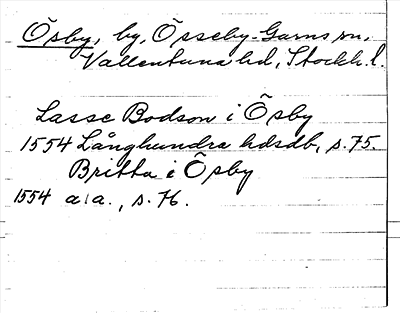 Õsby, by, Õsseby-Garns sn,
Vallentuna hd, Stockh. l.
Lasse Bodson i Õsby
1554 Långhundra hdsdb, s. 75.
Britta i Õsby
1554 a. a., s. 76.